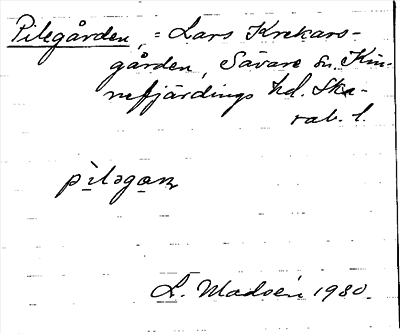 Pilegården, = Lars Krekars-
gården, Sävare sn. Kin-
nefjärdings hd. Ska-
rab. l.
L. Madsén 1980.